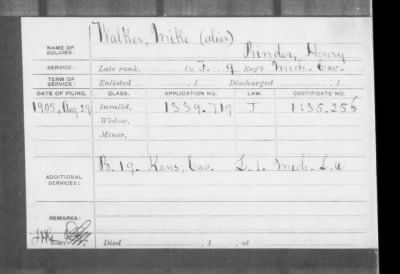 Walker, Mike (alias)
NAME OF SOLDIER: Rinder, Henry
SERVICE: Late rank, Co. F. 9 Reg't Mich. Cav.
TERM OF SERVICE: Enlisted , 1 Discharged , 1
DATE OF FILING. CLASS. APPLICATION NO. LAW. CERTIFICATE NO.
1905, Aug 29 Invalid, 1339.719 J 1135.256
Widow,
Minor,
ADDITIONAL SERVICES: B. 19. Kans, Cav. L. 1. Mich. L.A
REMARKS:
Died , 1 , at